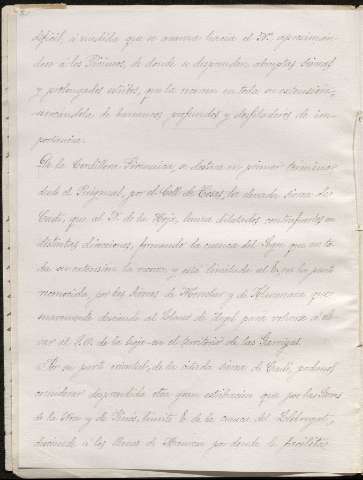 dificil, a medida que se avanza hacia el N. aproximan-
dose a los Pirineos, de donde se desprenden abruptas sierras
y prolongados estribos, que la recorren en toda su extension,
surcandola de barrancos profundos y desfiladeros de im-
portancia.
De la Cordillera Pirenaica, se destaca en primer termino
desde el Puigmal, por el Coll de Tosas, la elevada sierra del
Cadi, que al N. de la Hoja, lanza dilatados contrafuertes en
distintas direcciones, formando la cuenca del Segre que en to-
da su extension la recorre y está limitada al E, en la parte
reconocida, por las Sierras de y de que
suavemente desciende al Llano de Urgel para volverse a ele-
var al S.O. de la hoja en el territorio de las Garrigas.
Por su parte oriental, de la citada sierra de Cadi, podemos
considerar desprendida otra gran estribacion que por las Sierras
de la y de Pinós, limite E. de la cuenca del Llobregat,
desciende a los llanos de por donde le facilita